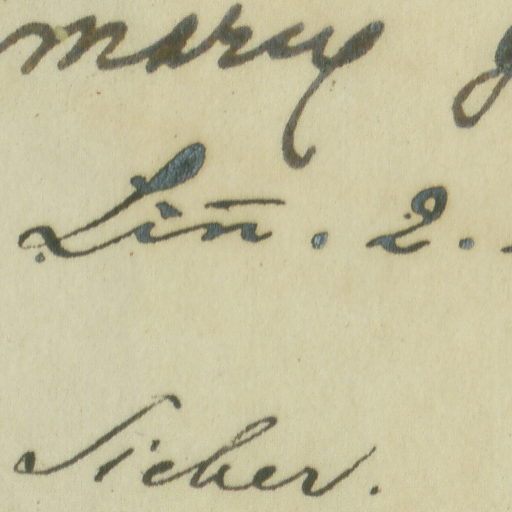 mary
Lin̄. 2.
Sieber.